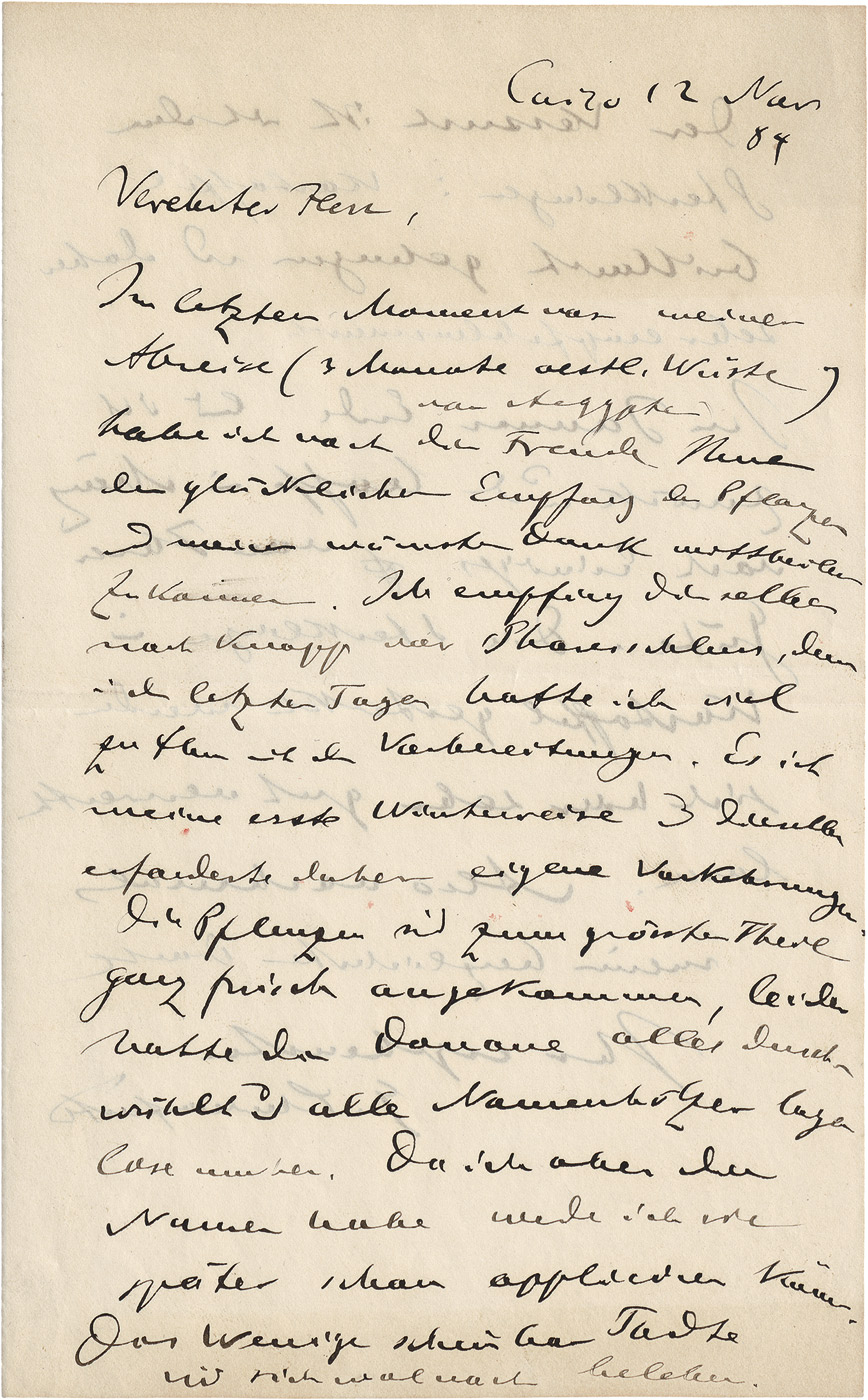 Cairo 12 Nov
84
Verehrter Herr,
Im letzten Moment vor meiner
Abreise (3 Monate oestl. Wüste)
von Aegypten
habe ich noch die Freude Ihnen
den glücklichen Empfang der Pflanzen
u meinen wärmsten Dank mittheilen
zu können. Ich empfing dieselben
noch knapp vor Thoresschluss, denn
in den letzten Tagen hatte ich viel
zu thun mit den Vorbereitungen. Es ist
meine erste Winterreise u dieselbe
erforderte daher eigene Vorkehrungen.
Die Pflanzen sind zum grössten Theil
ganz frisch angekommen, leider
hatte die Douane alles durch-
wühlt u alle Namenhölzer lagen
lose umher. Da ich aber die
Namen habe werde ich sie
später schon appliciren können.
Das Wenige scheinbar Todte
wird sich wol noch beleben.